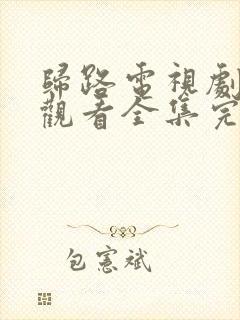 歸路電視劇
觀看全集完
包憲斌